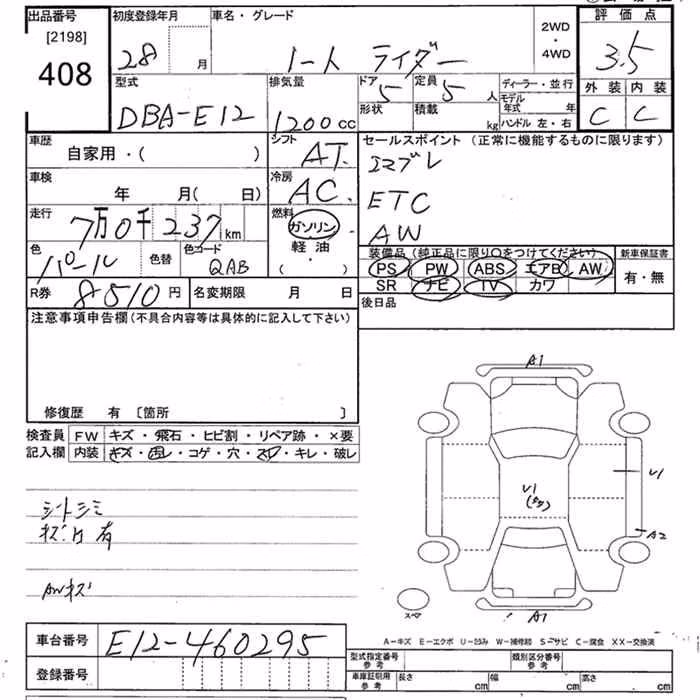 出品番号 初度登録年月 車名・グレード 評価点
[2198]
408
28 月 ノート ライダー 2WD・4WD 3.5
型式 排気量 ドア 定員 ディーラー・並行 外装 内装
DBA-E12 1200cc 5 5人 モデル年式 年 C C
形状 積載 kg ハンドル 左・右
車歴 シフト セールスポイント (正常に機能するものに限ります)
自家用・( ) AT エマブレ
車検 冷房
年 月(日) AC ETC
走行 燃料
7万0千237km ガソリン AW
色 色替 色コード 軽油・ 装備品(純正品に限り○をつけてください) 新車保証書
パール QAB ・( ) PS PW ABS エアB AW 有・無
R券 8510円 名変期限 月 日 SR ナビ TV カワ
注意事項申告欄(不具合内容等は具体的に記入して下さい) 後日品
修復歴 有 〔箇所 〕
検査員 FW キズ・飛石・ヒビ割・リペア跡・×要
記入欄 内装 キズ・汚れ・コゲ・穴・スレ・キレ・破レ
シートシミ
キズ 有
AWキズ
A1
U1
U1
A2
A1
スペア
A-キズ E-エクボ U-凹み W-補修跡 S-サビ C-腐食 XX-交換済
車台番号 E12-460295 型式指定番号 参考 類別区分番号 参考
登録番号 車庫証明用 参考 長さ cm 幅 cm 高さ cm